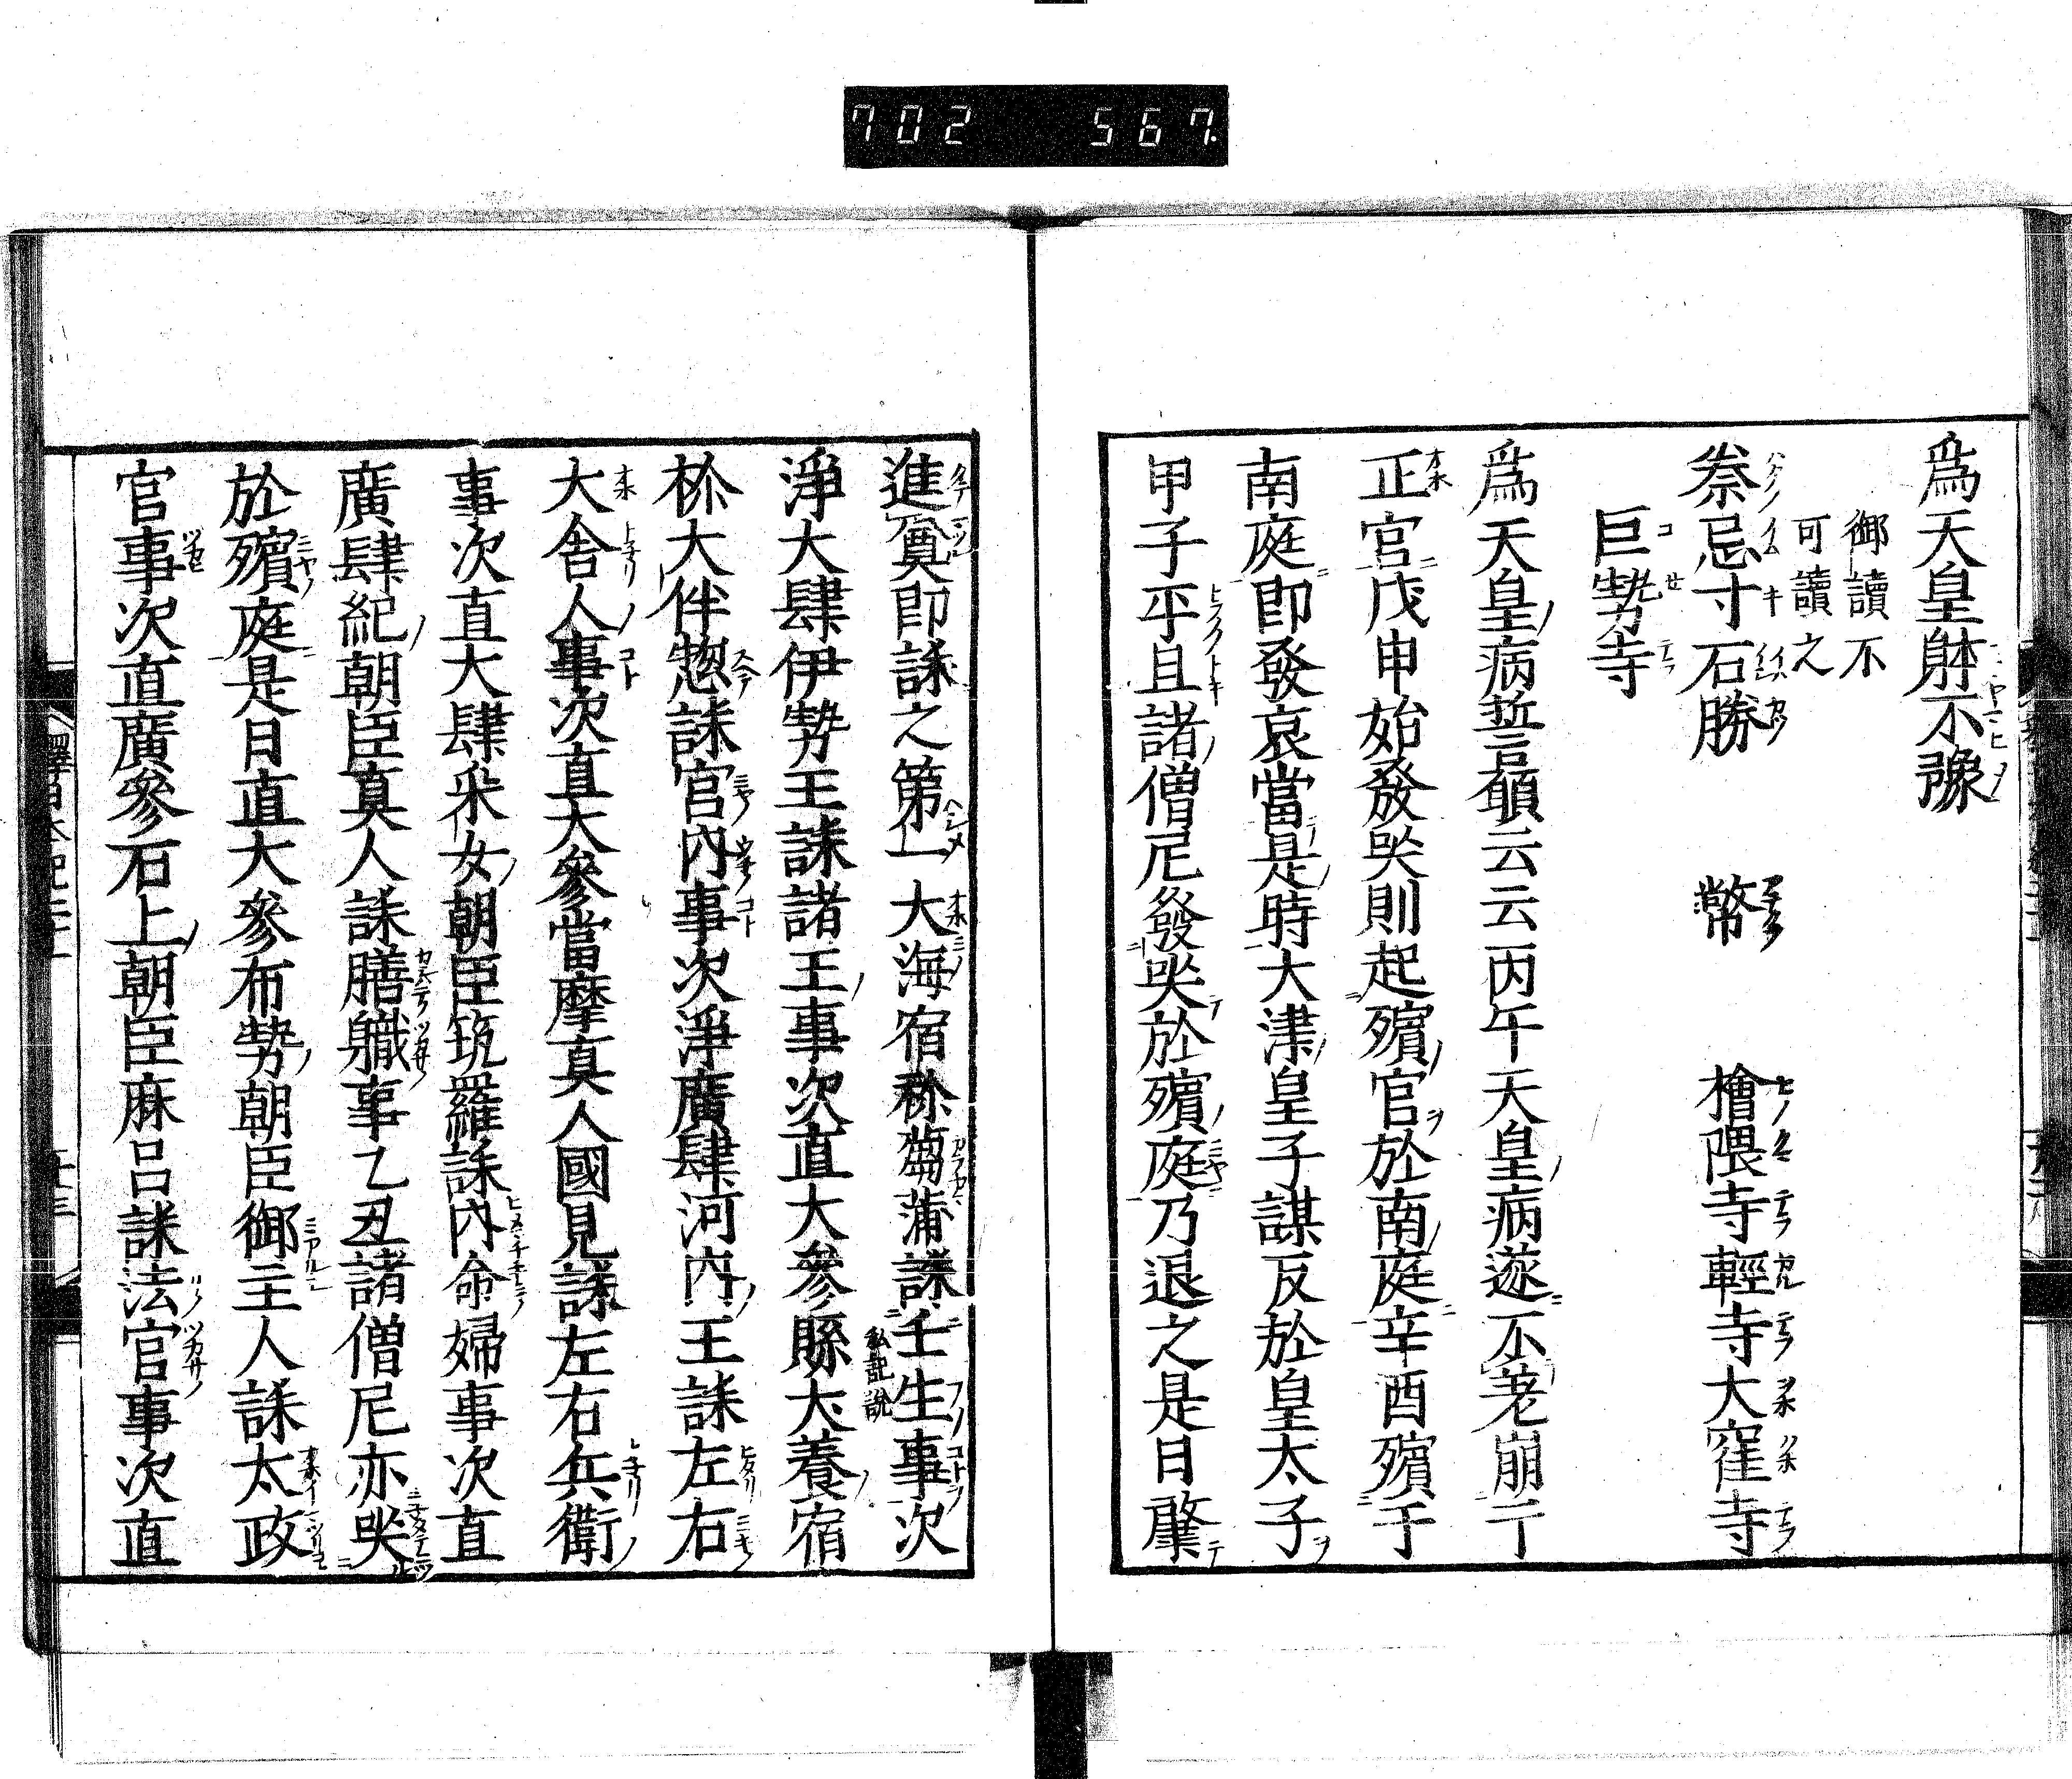 702 567.
爲天皇躰不豫
御讀不
可讀之
桊忌寸石勝 幣 檜隈寺輕寺大窪寺
巨勢寺
爲天皇病誓願云云丙午天皇病遂不差崩于
正宮戊申始發哭則起殯宮於南庭辛酉殯于
南庭即發哀當是時大津皇子謀反於皇太子
甲子平旦諸僧尼發哭於殯庭乃退之是日肇
進奠即誄之第一大海宿祢蒭蒲誄壬生事次
私記説
淨大肆伊勢王誄諸王事次直大參縣犬養宿
祢大伴惣誄宮內事次淨廣肆河內王誄左右
大舍人事次直大參當摩真人國見誄左右兵衛
事次直大肆采女朝臣筑羅誄內命婦事次直
廣肆紀朝臣真人誄膳職事乙丑諸僧尼亦哭
於殯庭是日直大參布勢朝臣御主人誄太政
官事次直廣參石上朝臣麻呂誄法官事次直